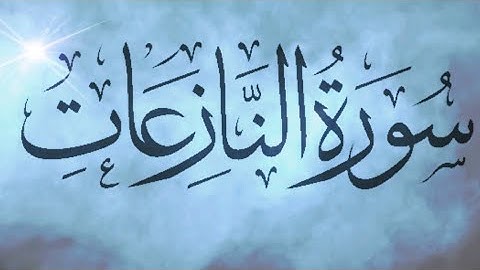 سُورَةُ النَّازِعَاتِ